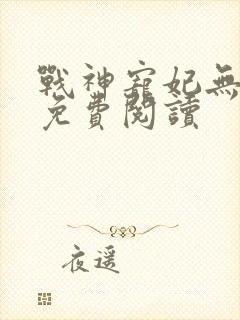 戰神寵妃無
免費閱讀
夜遥